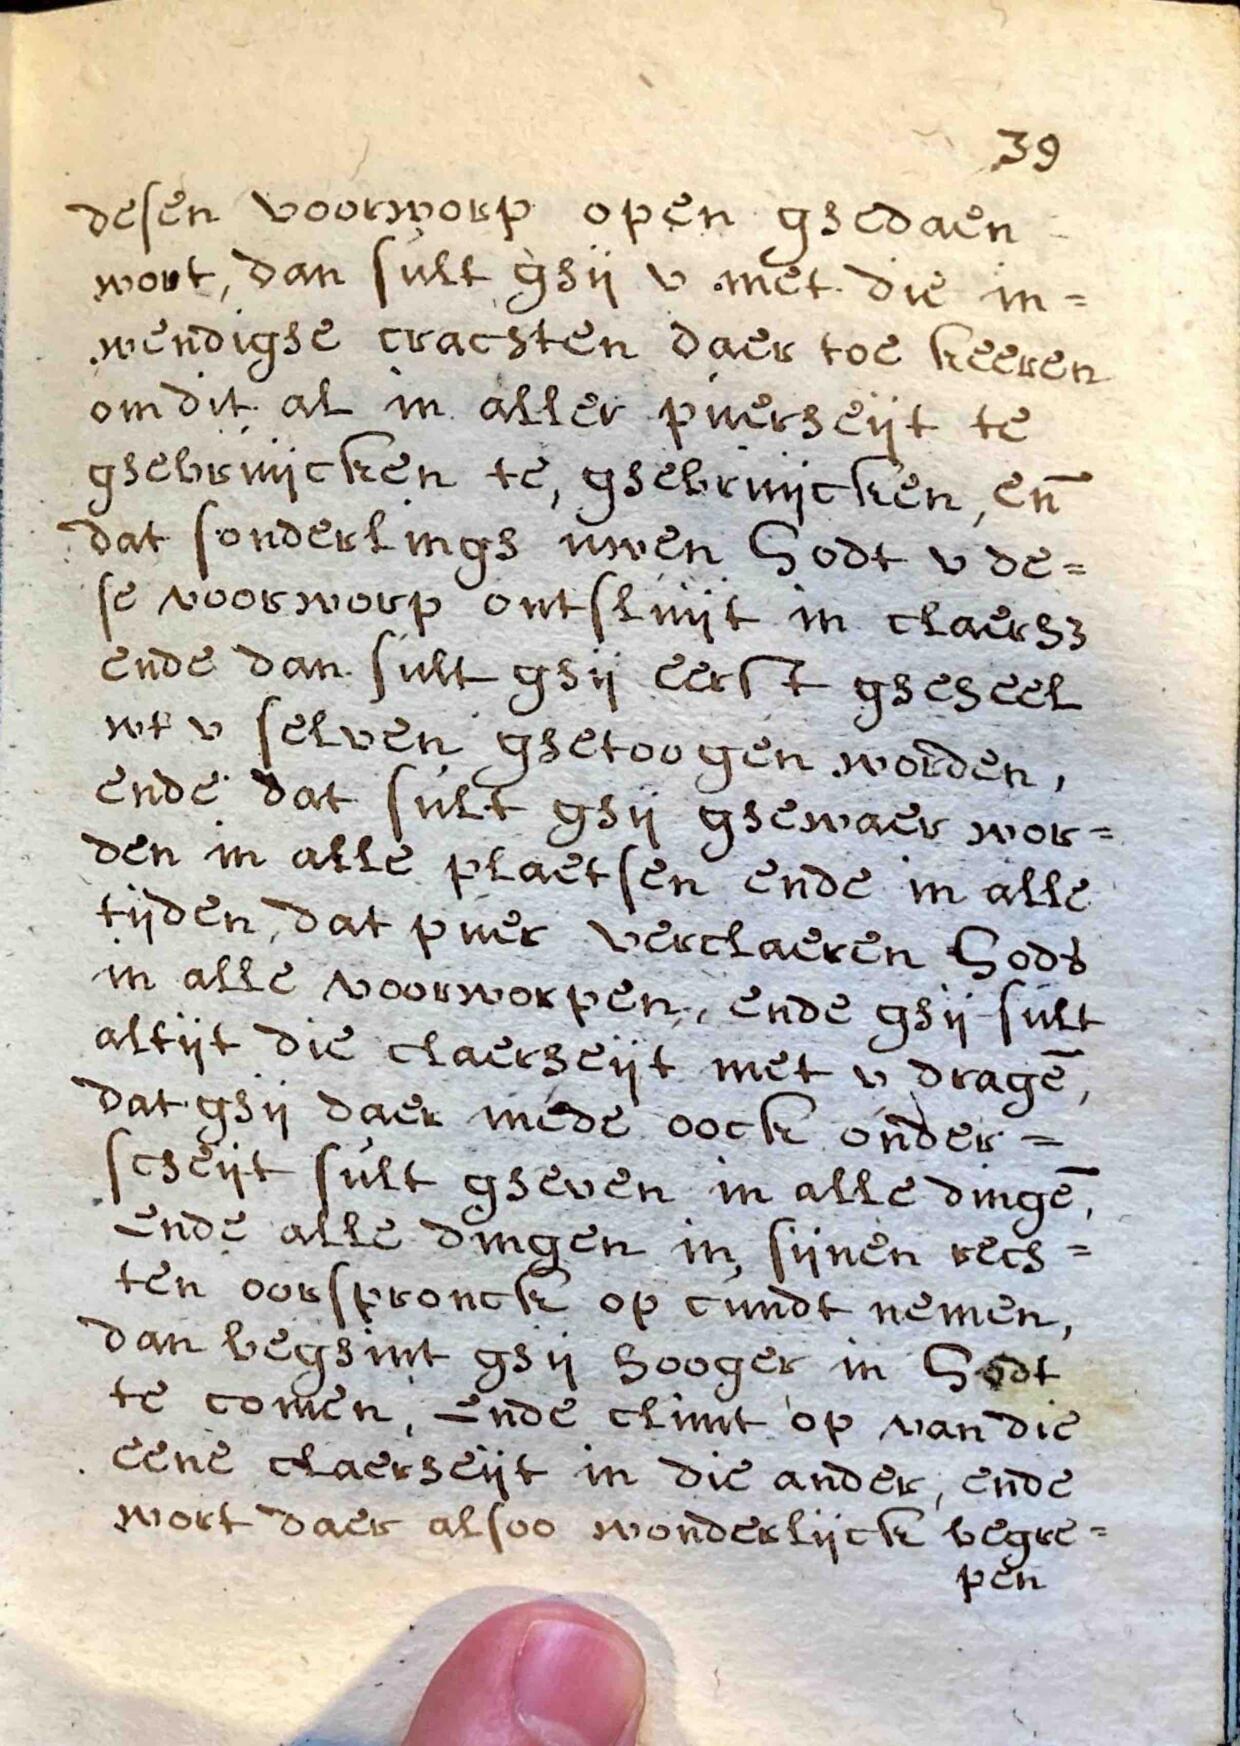 39
desen voorworp open ghedaen
wort, dan sult ghij v met die in=
wendighe crachten daer toe keeren
om dit al in aller puerheijt te
ghebruijcken te, ghebruijcken, en̄
dat sonderlingh uwen Godt v de=
se voorworp ontsluijt in claerh3
ende dan sult ghij eerst gheheel
wt v selven ghetoogen worden,
ende dat sult ghij ghewaer wor=
den in alle plaetsen ende in alle
tijden, dat puer verclaeren Godts
in alle voorworpen, ende ghij sult
altijt die claerheijt met v dragē,
dat ghij daer mede oock onder=
scheijt sult gheven in alle dingē,
Ende alle dingen in, sijnen rech=
ten oorspronck op cundt nemen,
dan beghint ghij hooger in Godt
te comen, Ende climt op van die
eene claerheijt in die ander, ende
wort daer alsoo wonderlijck begre=
pen